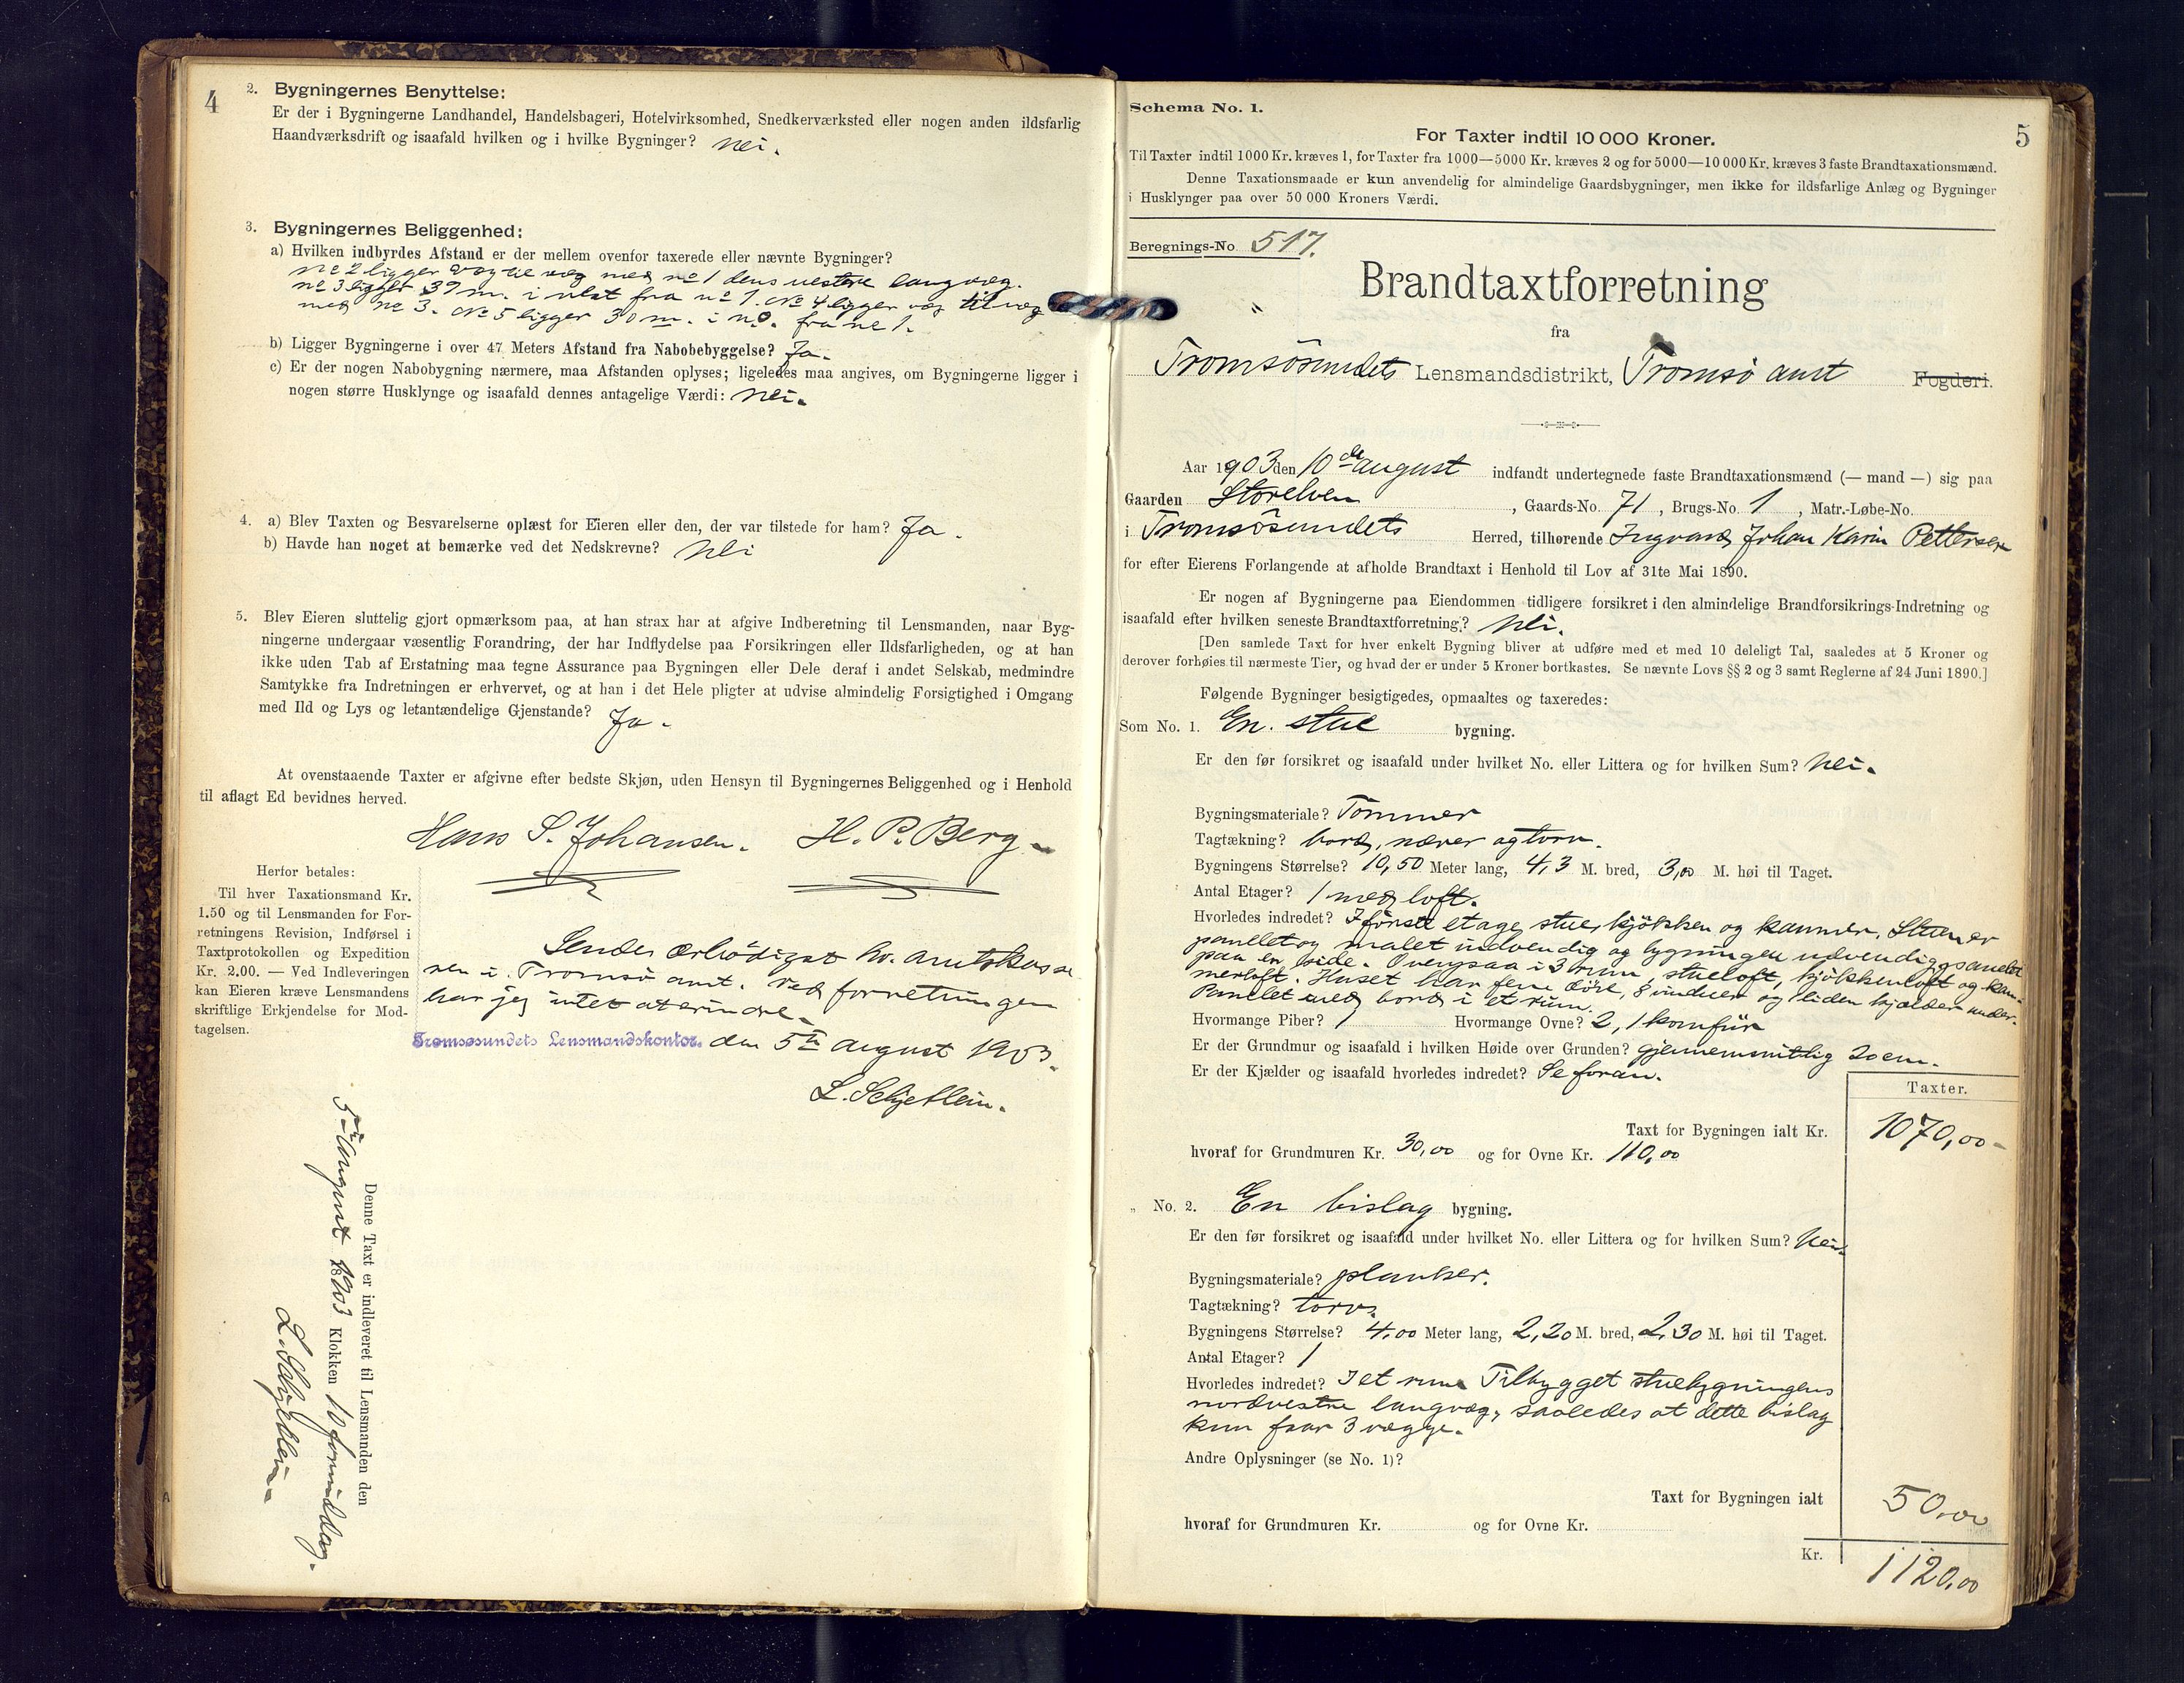 4
2. Bygningernes Benyttelse:
Er der i Bygningerne Landhandel, Handelsbageri, Hotelvirksomhed, Snedkerværksted eller nogen anden ildsfarlig
Haandværksdrift og isaafald hvilken og i hvilke Bygninger? nei.
3. Bygningernes Beliggenhed:
a) Hvilken indbyrdes Afstand er der mellem ovenfor taxerede eller nævnte Bygninger?
No 2 ligger væg til væg med no 1 dens vestre langvæg.
no 3 ligger 39 m. i vest fra no 1. No 4 ligger væg til væg
med no 3. No 5 ligger 30 m. i n.o. fra no 1.
b) Ligger Bygningerne i over 47 Meters Afstand fra Nabobebyggelse? Ja.
c) Er der nogen Nabobygning nærmere, maa Afstanden oplyses; ligeledes maa angives, om Bygningerne ligger i
nogen større Husklynge og isaafald dennes antagelige Værdi: nei.
4. a) Blev Taxten og Besvarelserne oplæst for Eieren eller den, der var tilstede for ham? Ja.
b) Havde han noget at bemærke ved det Nedskrevne? Nei
5. Blev Eieren sluttelig gjort opmærksom paa, at han strax har at afgive Indberetning til Lensmanden, naar Byg-
ningerne undergaar væsentlig Forandring, der har Indflydelse paa Forsikringen eller Ildsfarligheden, og at han
ikke uden Tab af Erstatning maa tegne Assurance paa Bygningen eller Dele deraf i andet Selskab, medmindre
Samtykke fra Indretningen er erhvervet, og at han i det Hele pligter at udvise almindelig Forsigtighed i Omgang
med Ild og Lys og letantændelige Gjenstande? Ja.
At ovenstaaende Taxter er afgivne efter bedste Skjøn, uden Hensyn til Bygningernes Beliggenhed og i Henhold
til aflagt Ed bevidnes herved.
Hans S. Johansen. H. P. Berg.
Herfor betales:
Til hver Taxationsmand Kr.
1.50 og til Lensmanden for For-
retningens Revision, Indførsel i
Taxtprotokollen og Expedition
Kr. 2.00. — Ved Indleveringen
kan Eieren kræve Lensmandens
skriftlige Erkjendelse for Mod-
tagelsen.
Sendes ærbödigst hr. amtskasse
ren i Tromsö amt. Ved forretningen
har jeg intet at erindre.
Tromsøsundets Lensmandskontor. den 5te august 1903.
L. Schjetlein.
Denne Taxt er indleveret til Lensmanden den
5te August 1903 Klokken 10 formiddag.
L. Schjetlein
Schema No. 1.
5
For Taxter indtil 10 000 Kroner.
Til Taxter indtil 1000 Kr. kræves 1, for Taxter fra 1000—5000 Kr. kræves 2 og for 5000—10 000 Kr. kræves 3 faste Brandtaxationsmænd.
Denne Taxationsmaade er kun anvendelig for almindelige Gaardsbygninger, men ikke for ildsfarlige Anlæg og Bygninger
i Husklynger paa over 50 000 Kroners Værdi.
Beregnings-No. 517.
Brandtaxtforretning
fra
Tromsösundets Lensmandsdistrikt, Tromsö amt Fogderi.
Aar 1903 den 10de august indfandt undertegnede faste Brandtaxationsmænd (— mand —) sig paa
Gaarden Storelven, Gaards-No. 71, Brugs-No. 1, Matr.-Løbe-No.
i Tromsösundets Herred, tilhørende Ingvard Johan Karin Pettersen
for efter Eierens Forlangende at afholde Brandtaxt i Henhold til Lov af 31te Mai 1890.
Er nogen af Bygningerne paa Eiendommen tidligere forsikret i den almindelige Brandforsikrings-Indretning og
isaafald efter hvilken seneste Brandtaxtforretning? Nei.
[Den samlede Taxt for hver enkelt Bygning bliver at udføre med et med 10 deleligt Tal, saaledes at 5 Kroner og
derover forhøies til nærmeste Tier, og hvad der er under 5 Kroner bortkastes. Se nævnte Lovs §§ 2 og 3 samt Reglerne af 24 Juni 1890.]
Følgende Bygninger besigtigedes, opmaaltes og taxeredes:
Som No. 1. En stue bygning.
Er den før forsikret og isaafald under hvilket No. eller Littera og for hvilken Sum? Nei.
Bygningsmateriale? Tömmer
Tagtækning? bord, næver og torv.
Bygningens Størrelse? 10,50 Meter lang, 4,3 M. bred, 3,00 M. høi til Taget.
Antal Etager? 1 med loft.
Hvorledes indredet? I förste etage, stue, kjökken og kammer. Stuen er
panelet og malet indvendig og bygningen udvendig panelet
paa en side. Ovenpaa i 3 rum, stueloft, kjökkenloft og kam-
merloft. Huset har fem döre, 8 vinduer og liden kjælder under.
Panelet med bord i et rum.
Hvormange Piber? 1 Hvormange Ovne? 2, 1 komfür
Er der Grundmur og isaafald i hvilken Høide over Grunden? gjennemsnitlig 20 cm.
Er der Kjælder og isaafald hvorledes indredet? Se foran.
Taxter.
Taxt for Bygningen ialt Kr. 1070,00
hvoraf for Grundmuren Kr. 30,00 og for Ovne Kr. 110,00
" No. 2. En bislag bygning.
Er den før forsikret og isaafald under hvilket No. eller Littera og for hvilken Sum? Nei.
Bygningsmateriale? planker.
Tagtækning? torv.
Bygningens Størrelse? 4,00 Meter lang, 2,20 M. bred, 2,30 M. høi til Taget.
Antal Etager? 1
Hvorledes indredet? I et rum Tilbygget stuebygningens
nordvestre langvæg, saaledes at dette bislag
kun faar 3 vægge.
Andre Oplysninger (se No. 1)?
Taxt for Bygningen ialt 50,00
hvoraf for Grundmuren Kr. og for Ovne Kr.
Kr. 1120,00